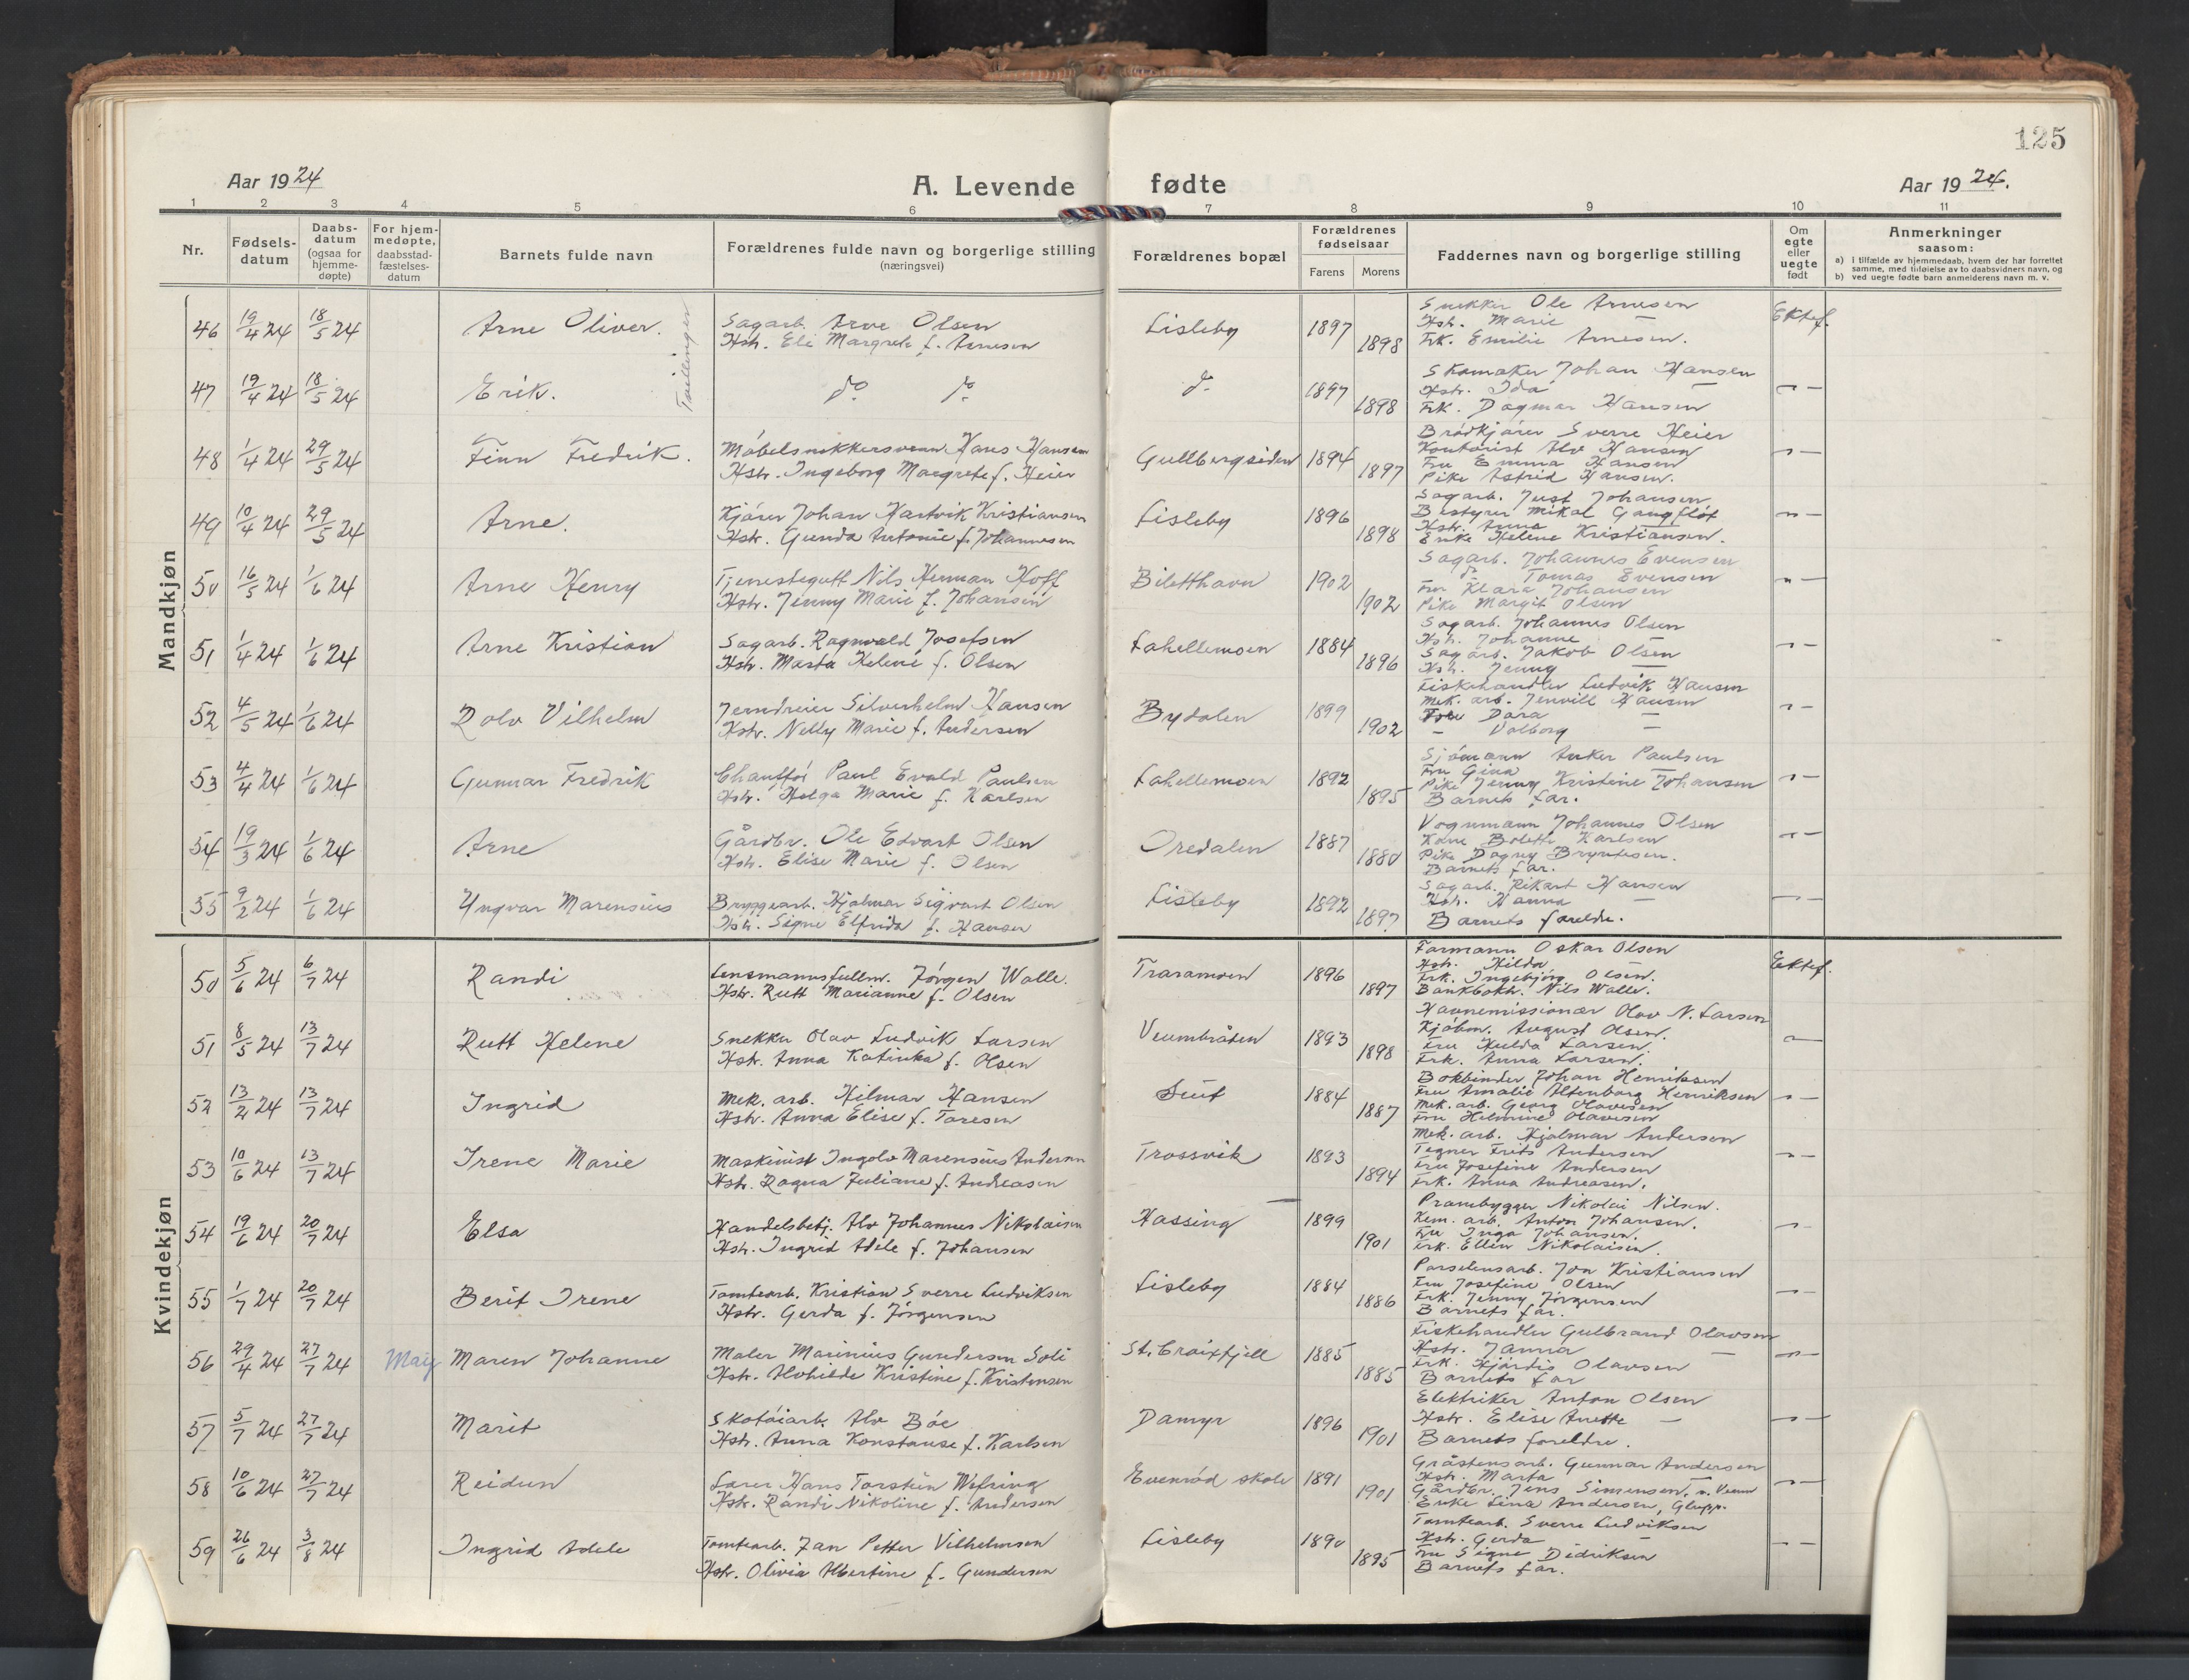 125
Aar 1924
A. Levende fødte
Aar 1924.
1 2 3 4 5 6 7 8 9 10 11
Nr.
Fødselsdatum
Daabsdatum (ogsaa for hjemmedøpte)
For hjemmedøpte, daabsstadfæstelsesdatum
Barnets fulde navn
Forældrenes fulde navn og borgerlige stilling (næringsvei)
Forældrenes bopæl
Forældrenes fødselsaar
Farens Morens
Faddernes navn og borgerlige stilling
Om egte eller uegte født
Anmerkninger saasom:
a) I tilfælde av hjemmedaab, hvem der har forrettet samme, med tilføielse av to daabsvidners navn, og
b) ved uegte fødte barn anmelderens navn m. v.
Mandkjøn
46 19/4 24 18/5 24 Arne Oliver. Tvillinger
Sagarb. Arve Olsen
Hstr. Eli Margrete f. Arnesen
Lisleby 1897 1898
Snekker Ole Arnesen
Hstr. Marie —
Frk. Emilie Arnesen.
Ektef.
47 19/4 24 18/5 24 Erik.
do do
do 1897 1898
Skomaker Johan Hansen
Hstr. Ida —
Frk. Dagmar Hansen
48 1/4 24 29/5 24 Finn Fredrik.
Møbelsnekkersvenn Hans Hansen
Hstr. Ingeborg Margrete f. Heier
Gullbergsiden 1894 1897
Brødkjører Sverre Heier
Kontorist Alv Hansen
Fru Emma Hansen
Pike Astrid Hansen.
49 10/4 24 29/5 24 Arne.
Kjører Johan Hartvik Kristiansen
Hstr. Gunda Antonie f. Johannesen
Lisleby 1896 1898
Sagarb. Just Johansen
Bestyrer Mikal Gangfløt
Hstr. Anna —
Enke Helene Kristiansen.
50 16/5 24 1/6 24 Arne Henry
Tjenestegutt Nils Herman Hoff
Hstr. Jenny Marie f. Johansen
Biletthavn 1902 1902
Sagarb. Johannes Evensen
do Tomas Evensen
Fru Klara Johansen
Pike Margit Olsen
51 1/4 24 1/6 24 Arne Kristian
Sagarb. Ragnvald Josefsen
Hstr. Marta Helene f. Olsen
Lahellemoen 1884 1896
Sagarb. Johannes Olsen
Hstr. Johanne —
Sagarb. Jakob Olsen
Hstr. Jenny —
52 4/5 24 1/6 24 Rolv Vilhelm
Jerndreier Silverhelm Hansen
Hstr. Nelly Marie f. Andersen
Bydalen 1899 1902
Fiskehandler Ludvik Hansen
Mek. arb. Jenvill Hansen
Dara —
— Valborg —
53 4/4 24 1/6 24 Gunnar Fredrik
Chauffør Paul Evald Paulsen
Hstr. Helga Marie f. Karlsen
Lahellemoen 1892 1895
Sjømann Anker Paulsen
Fru Gina —
Pike Jenny Kristine Johansen
Barnets far.
54 19/3 24 1/6 24 Arne
Gårdbr. Ole Edvart Olsen
Hstr. Elise Marie f. Olsen
Oredalen 1887 1880
Vognmann Johannes Olsen
Kone Bolette Karlsen
Pike Dagny Bryntesen.
Barnets far.
55 9/2 24 1/6 24 Yngvar Marensius
Bryggearb. Hjalmar Sigvart Olsen
Hstr. Signe Elfrida f. Hansen
Lisleby 1892 1897
Sagarb. Rikart Hansen
Hstr. Hanna —
Barnets foreldre.
Kvindekjøn
50 5/6 24 6/7 24 Randi
Lensmannsfullm. Jørgen Walle.
Hstr. Rutt Marianne f. Olsen
Traramoen 1896 1897
Formann Oskar Olsen
Hstr. Hilda —
Frk. Ingebjørg Olsen.
Bankbokh. Nils Walle.
Ektef.
51 8/5 24 13/7 24 Rutt Helene
Snekker Olav Ludvik Larsen
Hstr. Anna Katinka f. Olsen
Veumbråten 1893 1898
Havnemissionær Olav N. Larsen
Kjøbm. August Olsen.
Fru Hulda Larsen.
Frk. Anna Larsen.
52 13/2 24 13/7 24 Ingrid
Mek. arb. Hilmar Hansen
Hstr. Anna Elise f. Toresen
Seut 1884 1887
Bokbinder Johan Henriksen
Fru Amalie Altenborg Henriksen
Mek. arb. Georg Olavesen
Fru Helmine Olavesen
53 10/6 24 13/7 24 Irene Marie
Maskinist Ingolv Marensius Andersen
Hstr. Ragna Juliane f. Andreasen
Trossvik 1893 1894
Mek. arb. Hjalmar Andersen
Tegner Frits Andersen
Fru Josefine Andersen
Frk. Anna Andreasen.
54 19/6 24 20/7 24 Elsa
Handelsbetj. Alv Johannes Nikolaisen
Hstr. Ingrid Adele f. Johansen
Hassing 1899 1901
Prambygger Nikolai Nilsen.
Kem. arb. Anton Johansen.
Fru Inga Johansen.
Frk. Ellen Nikolaisen.
55 1/7 24 20/7 24 Berit Irene
Tomtearb. Kristian Sverre Ludviksen
Hstr. Gerda f. Jørgensen
Lisleby 1884 1886
Porselensarb. Jon Kristiansen
Fru Josefine Olsen
Frk. Jenny Jørgensen
Barnets far.
56 29/4 24 27/7 24 May Maren Johanne
Maler Marinius Gundersen Soli
Hstr. Alvhilde Kristine f. Kristensen
St. Croixfjell 1885 1885
Fiskehandler Gulbrand Olavsen
Hstr. Janna —
Frk. Hjørdis Olavsen
Barnets far
57 5/7 24 27/7 24 Marit
Skotøiarb. Alv Bøe
Hstr. Anna Konstanse f. Karlsen
Damyr 1896 1901
Elektriker Anton Olsen
Hstr. Elise Anette —
Barnets foreldre.
58 10/6 24 27/7 24 Reidun
Lærer Hans Torstein Wefring
Hstr. Randi Nikoline f. Andersen
Evenrød skole 1891 1901
Gråstensarb. Gunnar Andersen
Hstr. Marta —
Gårdbr. Jens Simensen, n. Veum
Enke Lina Andersen, Glupp.
59 26/6 24 3/8 24 Ingrid Adele
Tomtearb. Jan Petter Vilhelmsen
Hstr. Olivia Albertine f. Gundersen
Lisleby 1890 1895
Tomtearb. Sverre Ludviksen
Hstr. Gerda —
Fru Signe Didriksen
Barnets far.